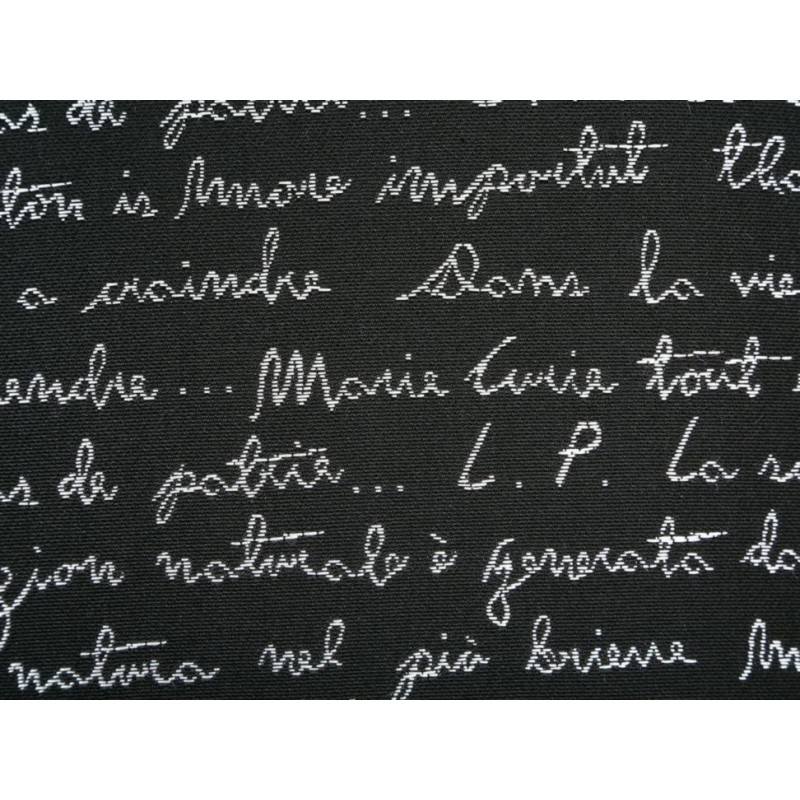 as de patrie...
is more importut tha
a craindre Dans la vie
endre... Marie Curie tout
as de patrie... L. P. La s
gion naturale è generata da
natura nel più brieve m